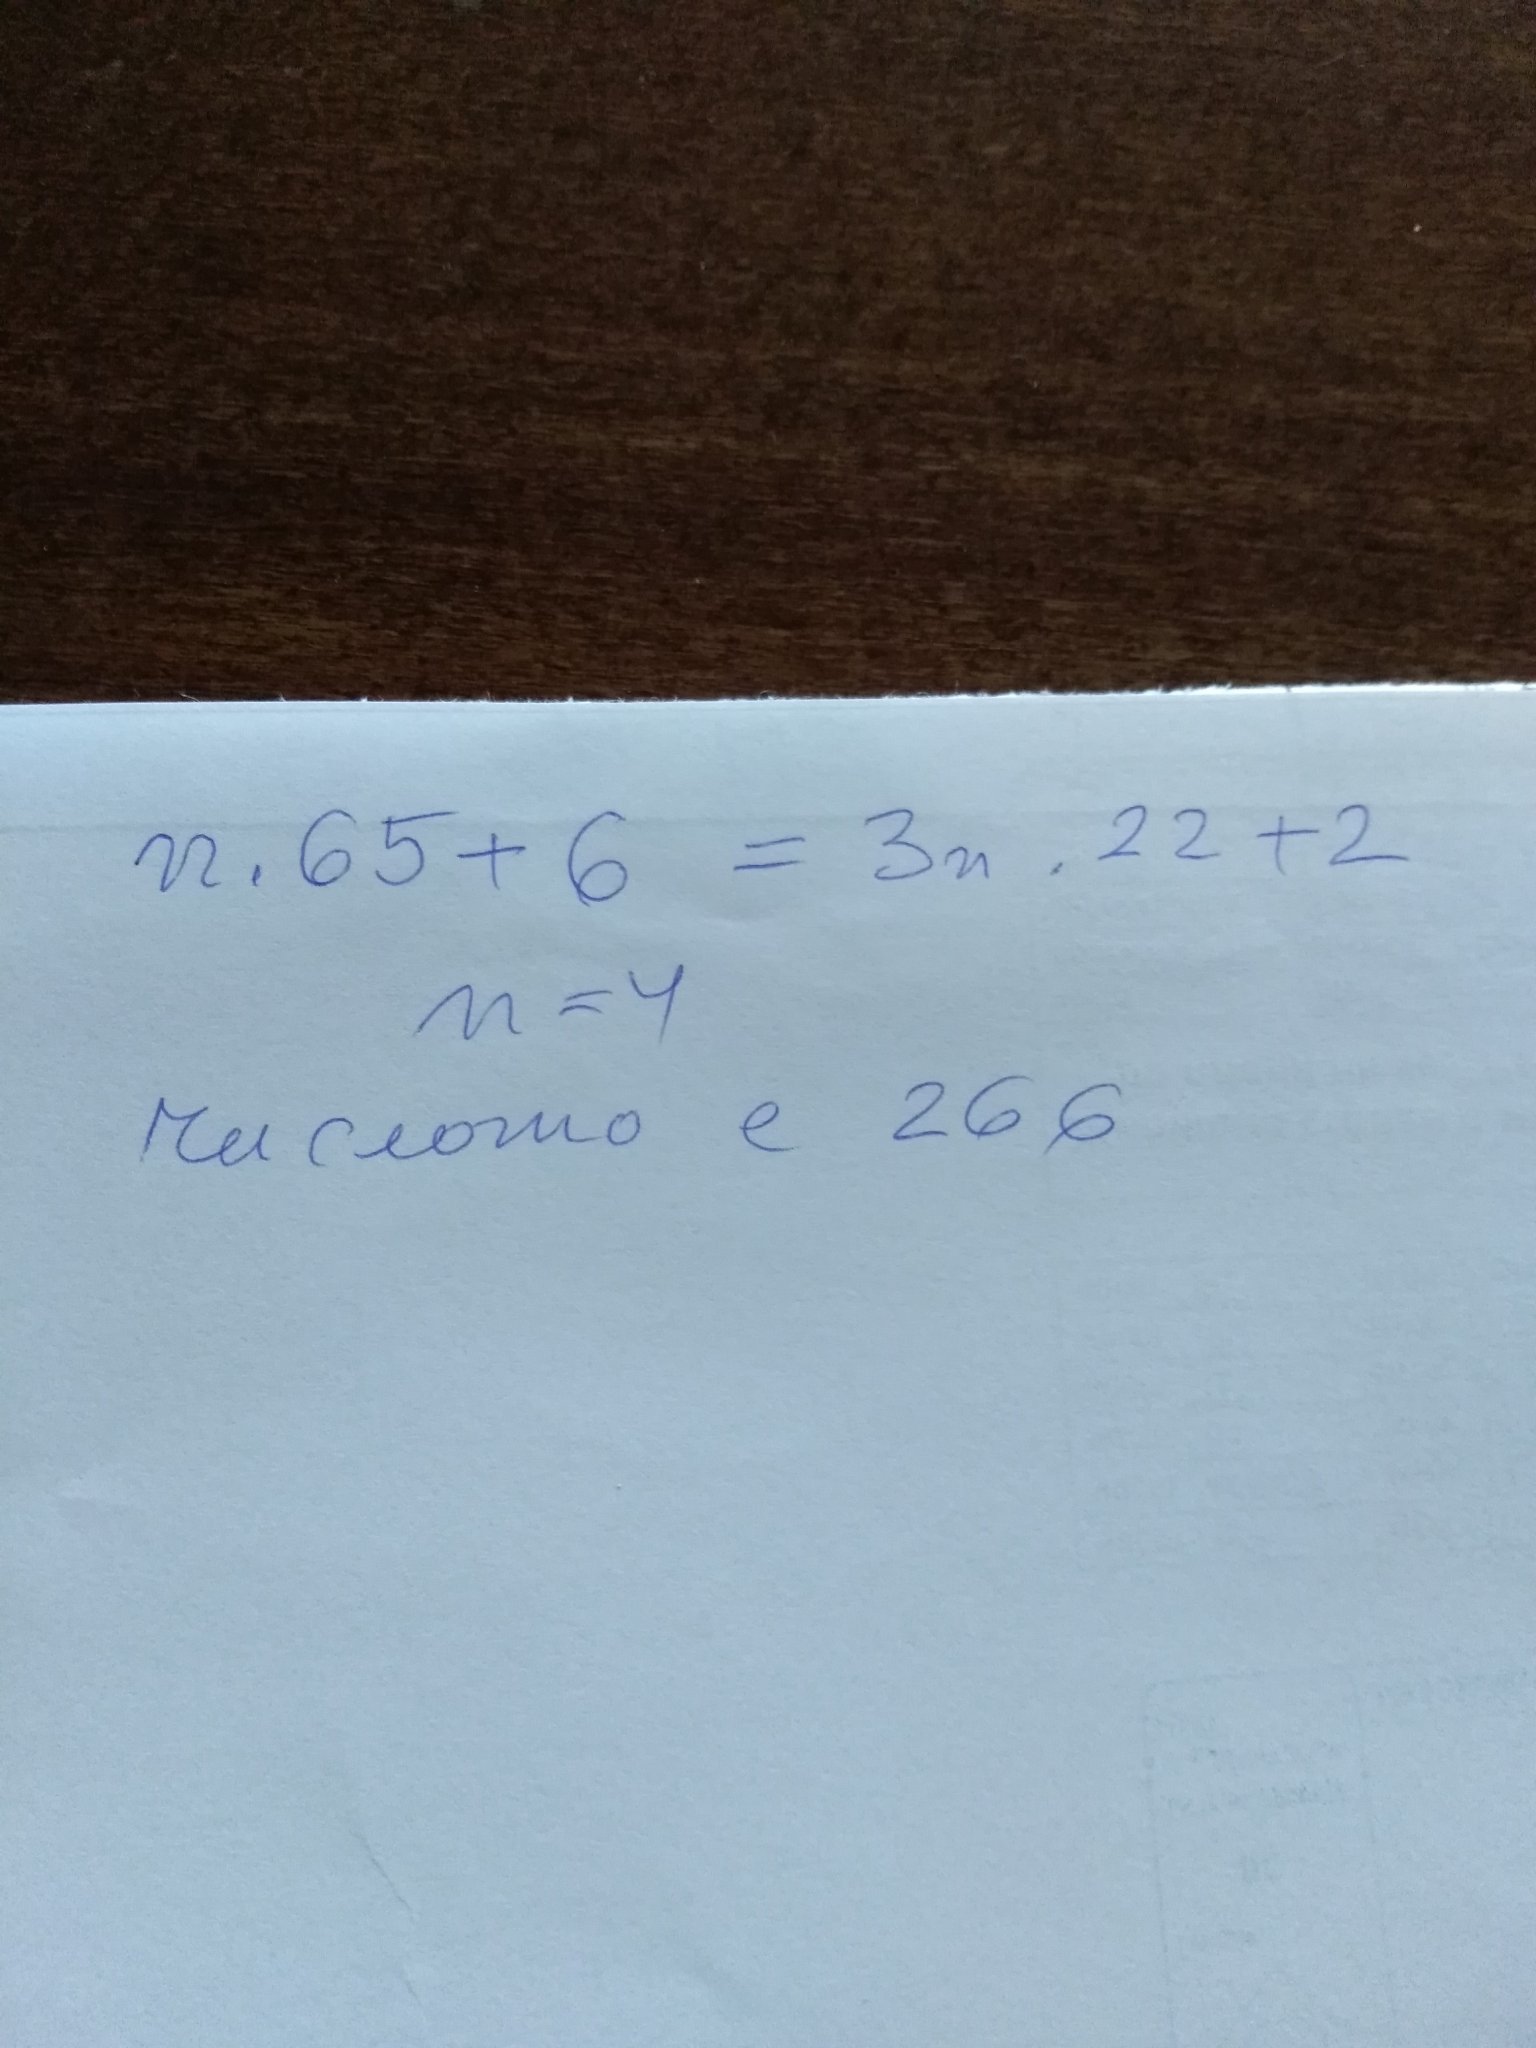 n.65+6 = 3n.22+2
n=4
Числото е 266